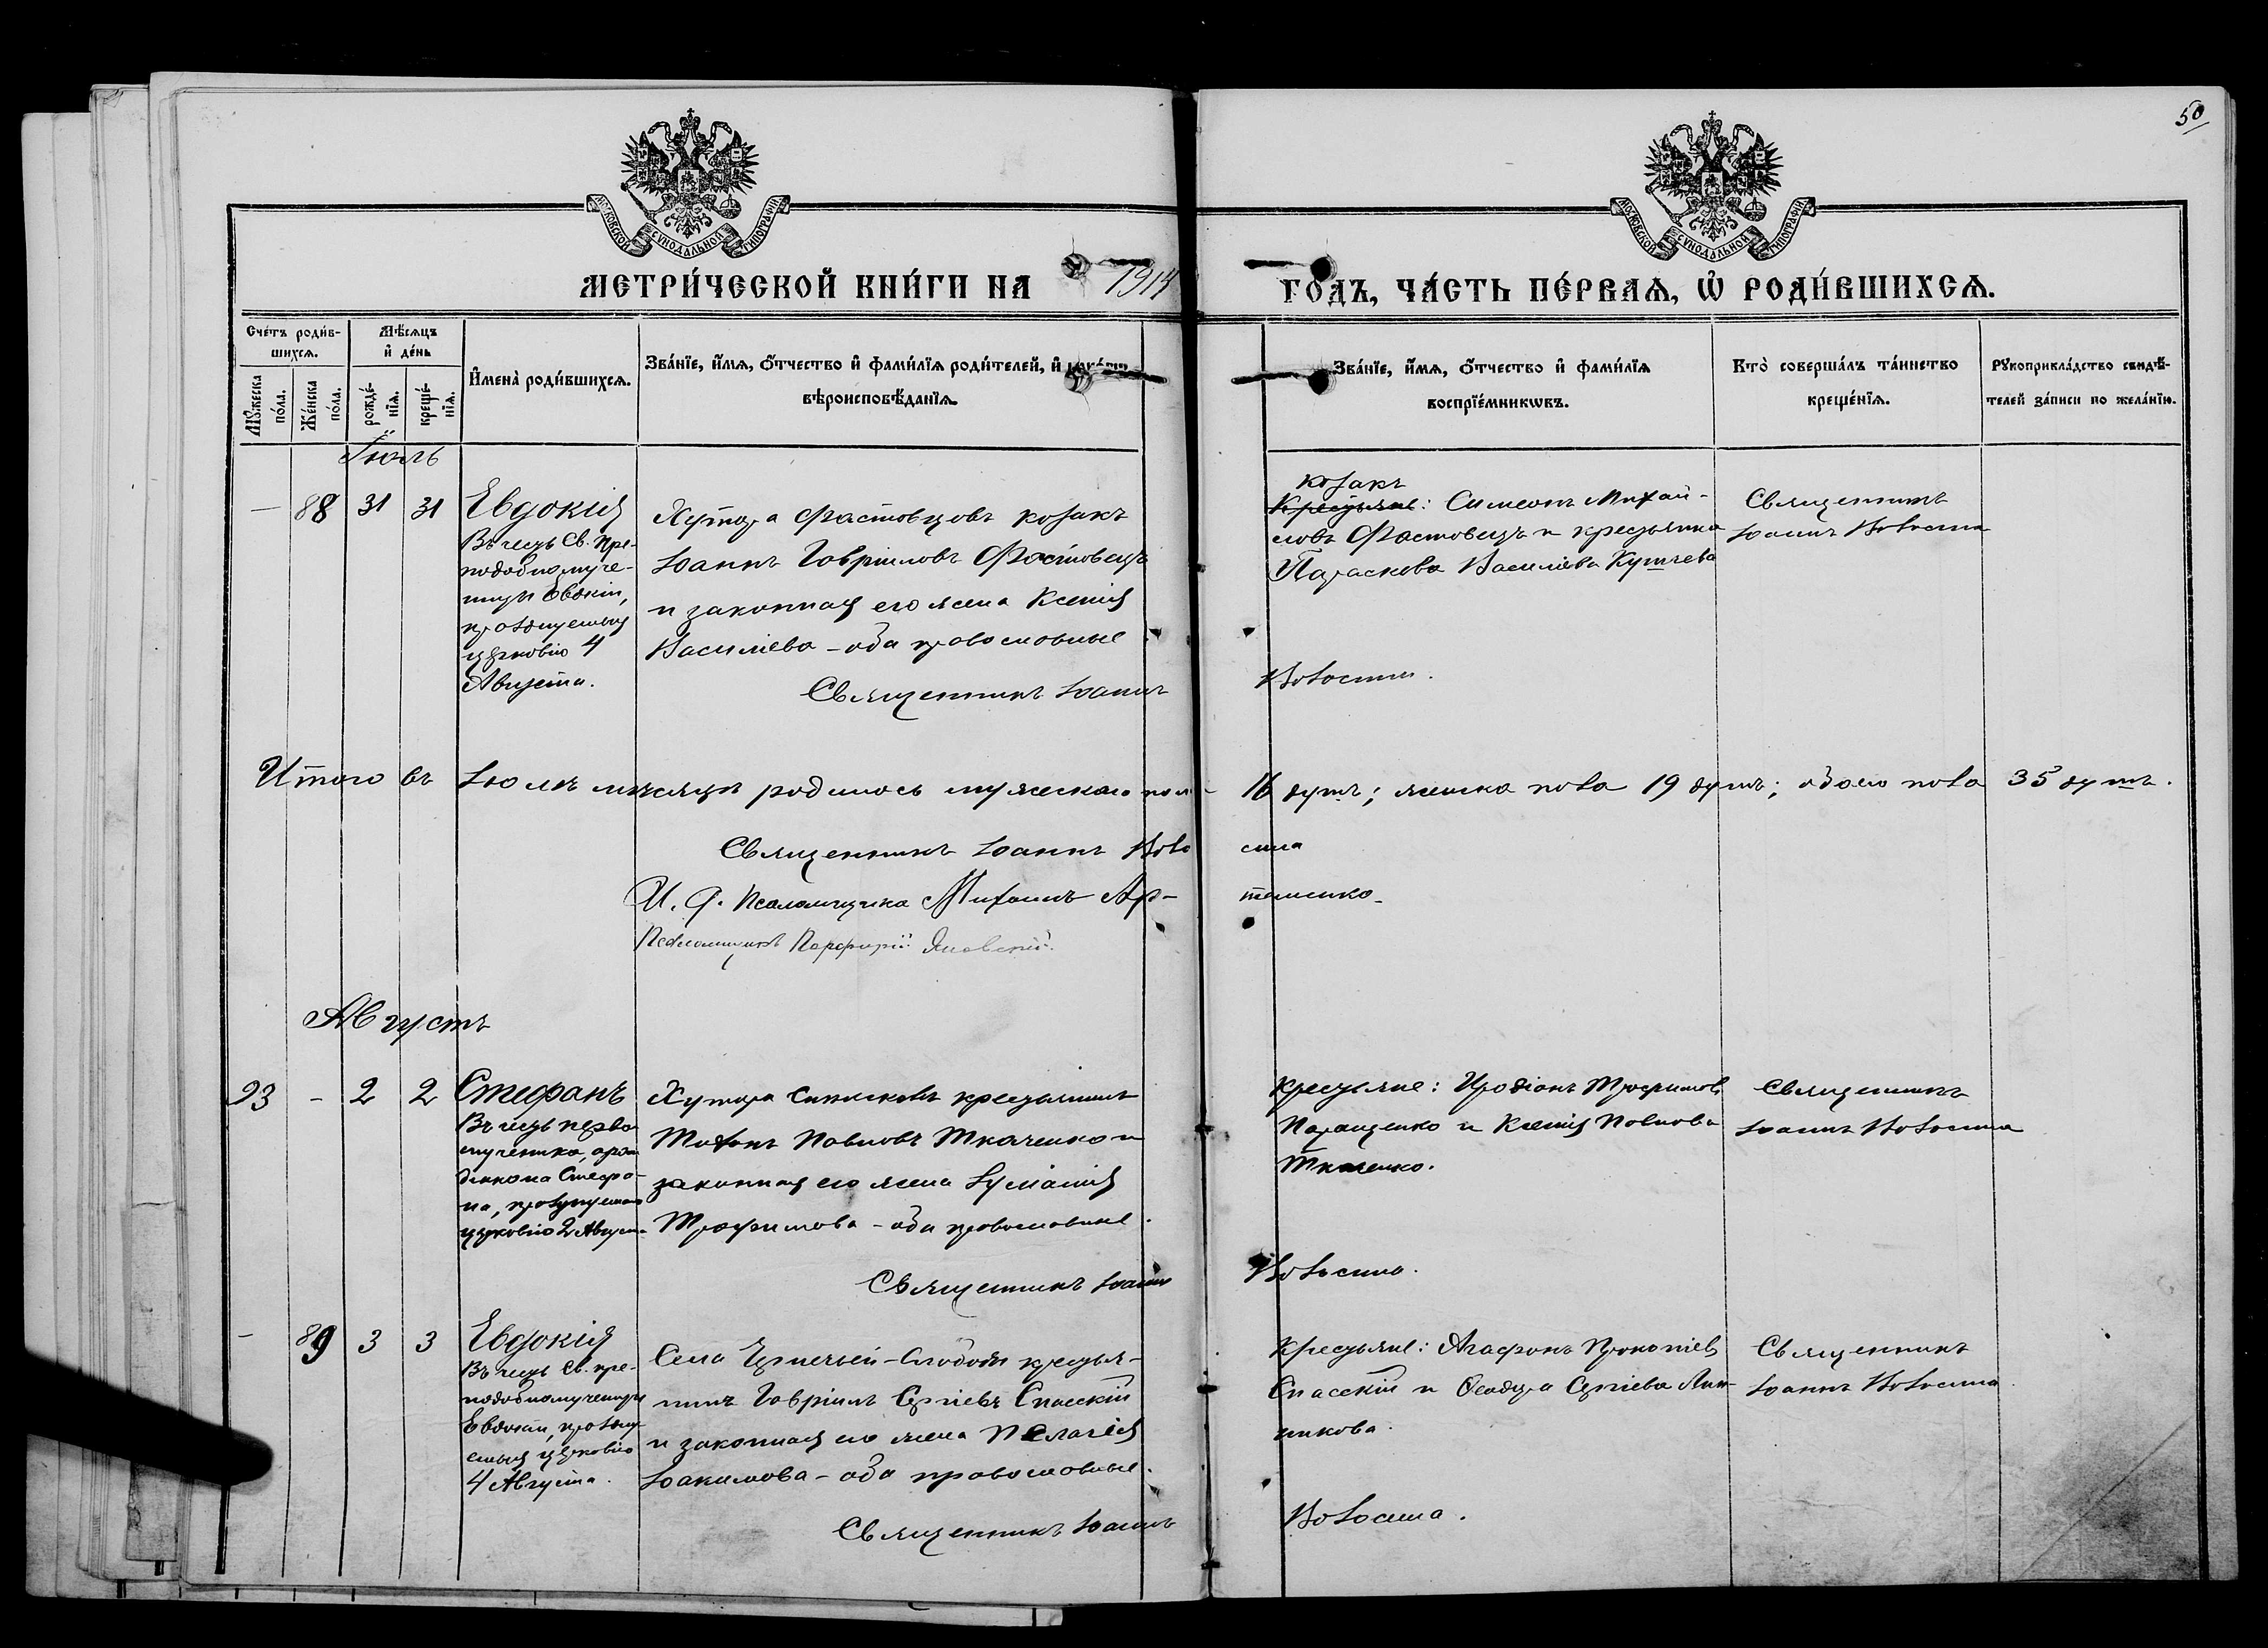 50
МОСКОВСКОЙ СѴНОДАЛЬНОЙ ТИПОГРАФІИ
МОСКОВСКОЙ СѴНОДАЛЬНОЙ ТИПОГРАФІИ
МЕТРИ́ЧЕСКОЙ КНИ́ГИ НА 1914
ГО́ДЪ, ЧА́СТЬ ПЕ́РВАѦ, Ѡ҆ РОДИ́ВШИХСѦ.
Сче́тъ роди́в-
шихсѧ.
Мꙋ́жеска по́ла.
Же́нска по́ла.
Мѣ́сѧцъ
и҆ де́нь
рожде́-нїѧ.
креще́-нїѧ.
И҆мена̀ роди́вшихсѧ.
Зва́нїе, и҆́мѧ, ѻ҆́тчество и҆ фами́лїѧ роди́телей, и҆
вѣроисповѣ́данїѧ.
Зва́нїе, и҆́мѧ, ѻ҆́тчество и҆ фами́лїѧ
воспрїе́мникѡвъ.
Кто̀ соверша́лъ та́инство
креще́нїѧ.
Рꙋкоприкла́дство свидѣ́-
телей за́писи по жела́нїю.
Іюль
— 88 31 31
Евдокія
Въ честь Св. Пре-
подобномуче-
ницы Евдокіи,
празднуемыя
церковію 4
Августа.
Хутора Фастовцовъ козакъ
Іоаннъ Гавріиловъ Фастовецъ
и законная его жена Ксенія
Василіева – оба православные
Священникъ Іоаннъ
Волосина.
козакъ
Крестьяне: Симеонъ Михаи-
ловъ Фастовецъ и крестьянка
Параскева Василіева
Священникъ
Іоаннъ Волосина
Итого въ Іюлѣ мѣсяцѣ родилось мужескаго пола
16 душъ; женска пола 19 душъ; обоего пола 35 душъ.
Священникъ Іоаннъ Воло
сина
И. д. Псаломщика Михаилъ Ар-
теменко
Псаломщикъ Порфирій Яновскій.
Августъ
23 – 2 2
Стефанъ
Въ честь перво
мученика, архи
діакона Стефа-
на, празднуемаго
церковію 2 Августа
Хутора крестьянинъ
Павловъ Ткаченко и
законная его жена Іуліанія
Трофимова – оба православные.
Священникъ Іоаннъ
Волосина.
Крестьяне: Иродіонъ Трофимовъ
Паращенко и Ксенія Павлова
Ткаченко.
Священникъ
Іоаннъ Волосина
– 89 3 3
Евдокія
Въ честь Св. пре-
подобномученицы
Евдокіи, праздну
емыя церковію
4 Августа.
Села Слободы крестья-
нинъ Гавріилъ Сергіевъ Спасскій
и законная его жена Пелагія
Іоакимова – оба православные.
Священникъ Іоаннъ
Волосина.
Крестьяне: Агафонъ Прокопіевъ
Спасскій и Сергіева
никова.
Священникъ
Іоаннъ Волосина